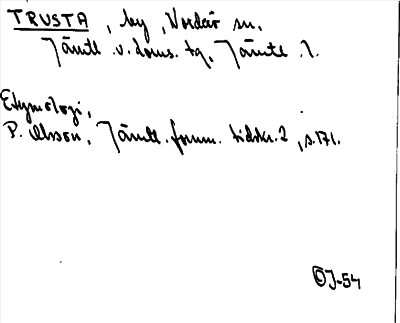 TRUSTA, by, Norderö sn.
Jämtl. v. doms. tg, Jämtl. l.
Etymologi,
P. Olsson, Jämtl. fornm. tidskr. 2, s. 171.
OJ-54